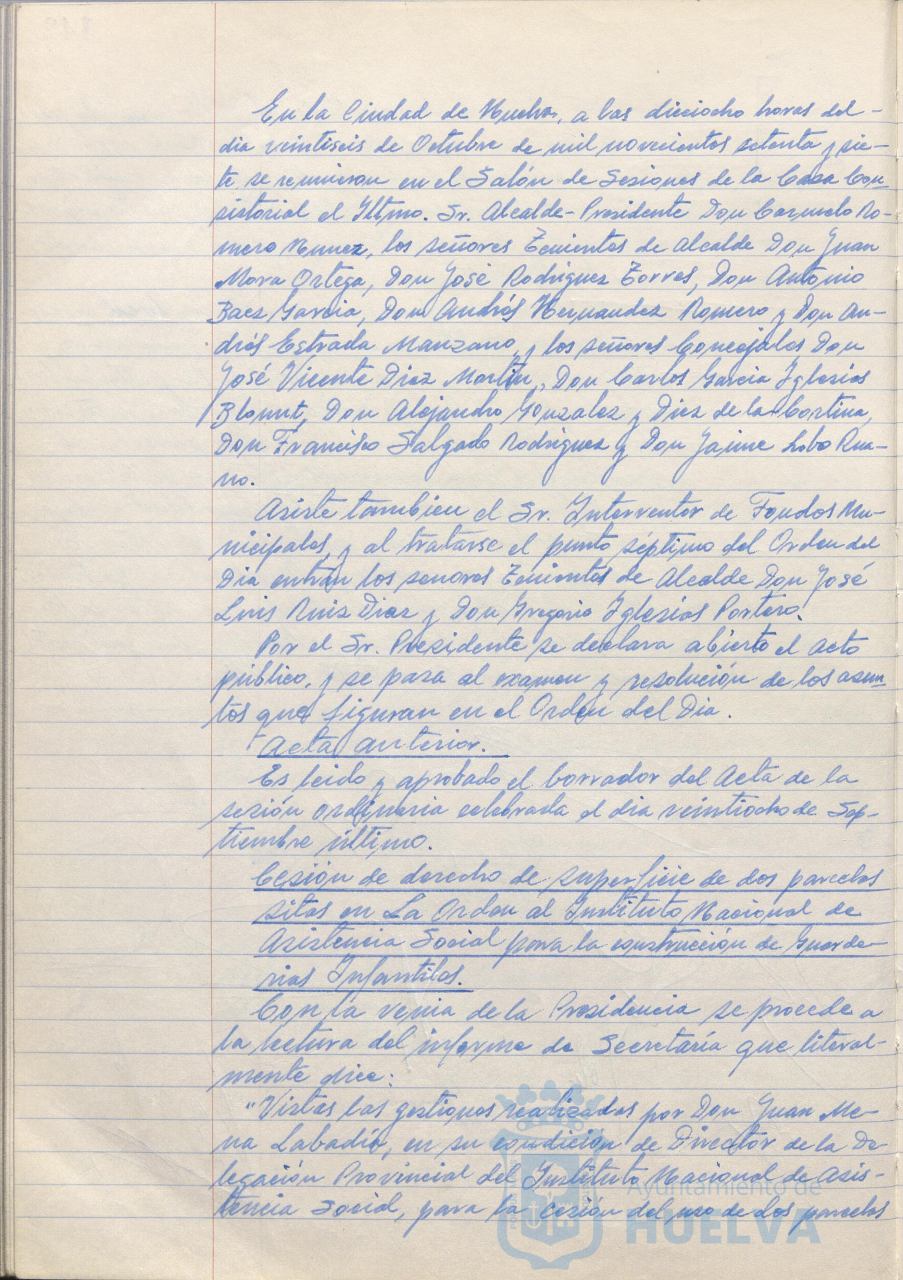 En la Ciudad de Huelva, a las dieciocho horas del
dia veintiseis de Octubre de mil novecientos setenta y sie-
te se reunieron en el Salón de Sesiones de la Casa Con
sistorial el Iltmo. Sr. Alcalde-Presidente Don Carmelo Ro-
mero Nuñez, los señores Tenientes de Alcalde Don Juan
Mora Ortega, Don José Rodriguez Torres, Don Antonio
Baez Garcia, Don Andrés Hernandez Romero y Don An-
drés Estrada Manzano, y los señores Concejales Don
José Vicente Diaz Martin, Don Carlos Garcia Iglesias
Blount, Don Alejandro Gonzalez y Diez de la Cortina,
Don Francisco Salgado Rodriguez y Don Jaime Lobo Rua-
no.
Asiste tambien el Sr. Interventor de Fondos Mu-
nicipales, y al tratarse el punto séptimo del Orden del
Dia entran los señores Tenientes de Alcalde Don José
Luis Ruiz Diaz y Don Gregorio Iglesias Portero.
Por el Sr. Presidente se declara abierto el acto
público, y se pasa al examen y resolución de los asun
tos que figuran en el Orden del Dia.
Acta anterior.
Es leido y aprobado el borrador del Acta de la
sesión ordinaria celebrada el dia veintiocho de Sep-
tiembre último.
Cesión de derecho de superficie de dos parcelas
sitas en La Orden al Instituto Nacional de
Asistencia Social para la construcción de Guarde-
rias Infantiles.
Con la venia de la Presidencia se procede a
la lectura del informe de Secretaría que literal-
mente dice:
"Vistas las gestiones realizadas por Don Juan Me-
na Labadía, en su condición de Director de la De-
legación Provincial del Instituto Nacional de Asis-
tencia Social, para la cesión del uso de dos parcelas
Ayuntamiento de
HUELVA